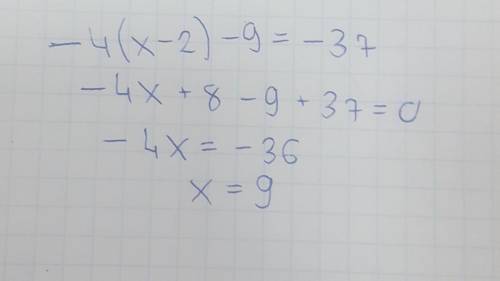 -4(x-2)-9=-37
-4x+8-9+37=0
-4x=-36
x=9